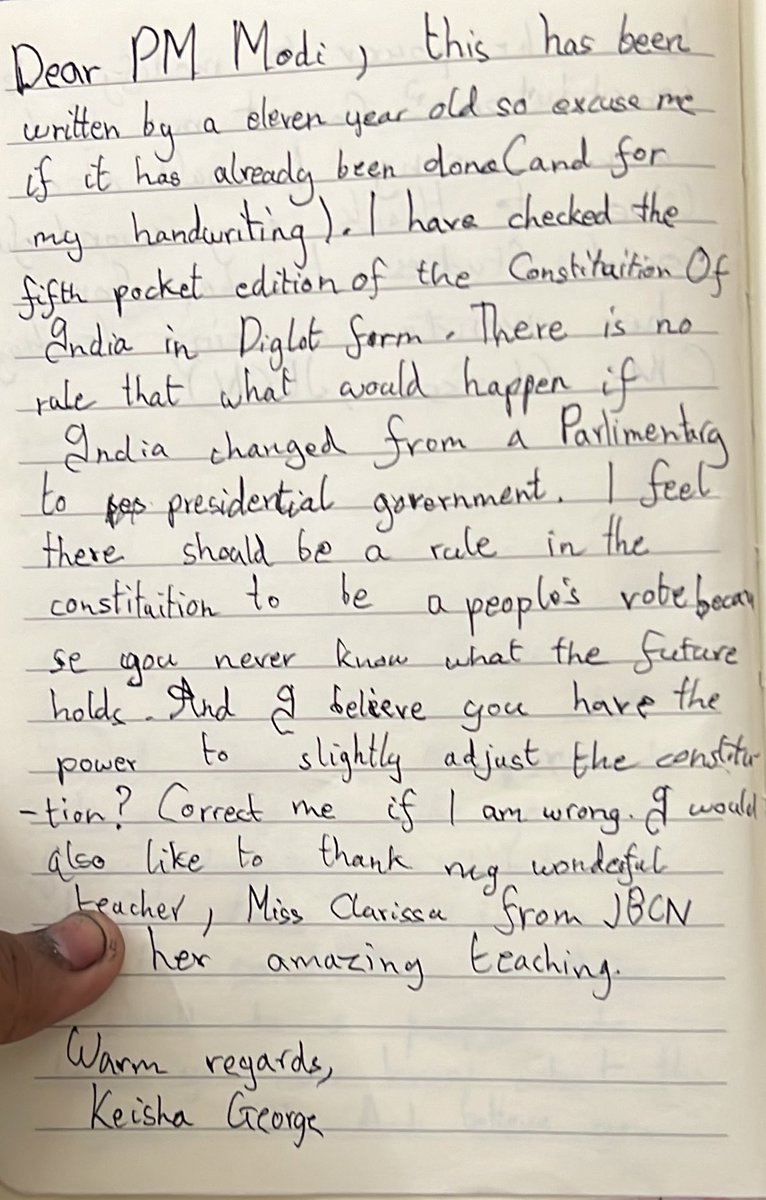 Dear PM Modi, this has been
written by a eleven year old so excuse me
if it has already been done(and for
my handwriting). I have checked the
fifth pocket edition of the Constituition Of
India in Diglot form. There is no
rule that what would happen if
India changed from a Parlimentary
to presidential government. I feel
there should be a rule in the
constituition to be a people's vote becau
se you never know what the future
holds. And I believe you have the
power to slightly adjust the constitu-
-tion? Correct me if I am wrong. I would
also like to thank my wonderful
teacher, Miss Clarissa from JBCN
her amazing teaching.
Warm regards,
Keisha George